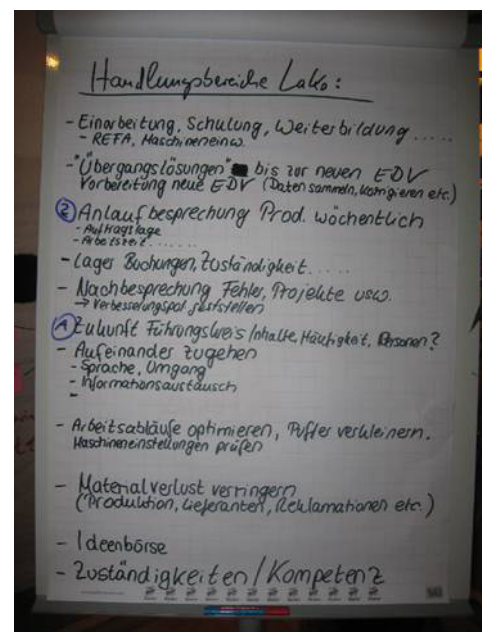 Handlungsbereiche Lako:
- Einarbeitung, Schulung, Weiterbildung .....
- REFA, Maschineneinw.
- "Übergangslösungen" bis zur neuen EDV
Vorbereitung neue EDV (Daten sammeln, korrigieren etc.)
② Anlaufbesprechung Prod. wöchentlich
- Auftragslage
- Arbeitszeit.......
- Lager Buchungen, Zuständigkeit.....
- Nachbesprechung Fehler, Projekte usw.
→ Verbesserungspot. feststellen
① Zukunft Führungskreis Inhalte, Häufigkeit, Personen?
- Aufeinander zugehen
- Sprache, Umgang
- Informationsaustausch
-
- Arbeitsabläufe optimieren, Puffer verkleinern.
Maschineneinstellungen prüfen
- Materialverlust verringern
(Produktion, Lieferanten, Reklamationen etc.)
- Ideenbörse
- Zuständigkeiten / Kompetenz